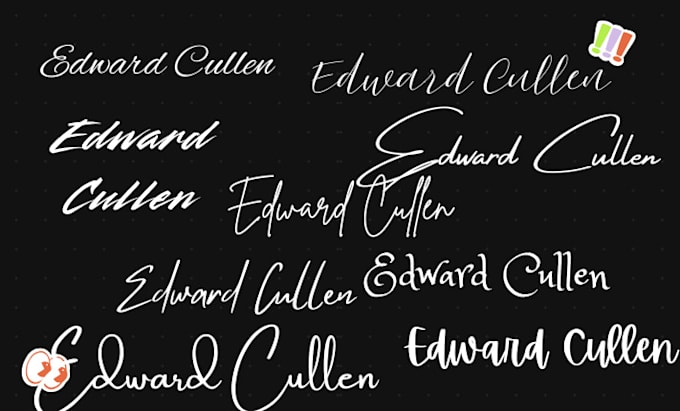 Edward Cullen
Edward Cullen
Edward
Cullen
Edward Cullen
Edward Cullen
Edward Cullen
Edward Cullen
Edward Cullen
Edward Cullen
!!!